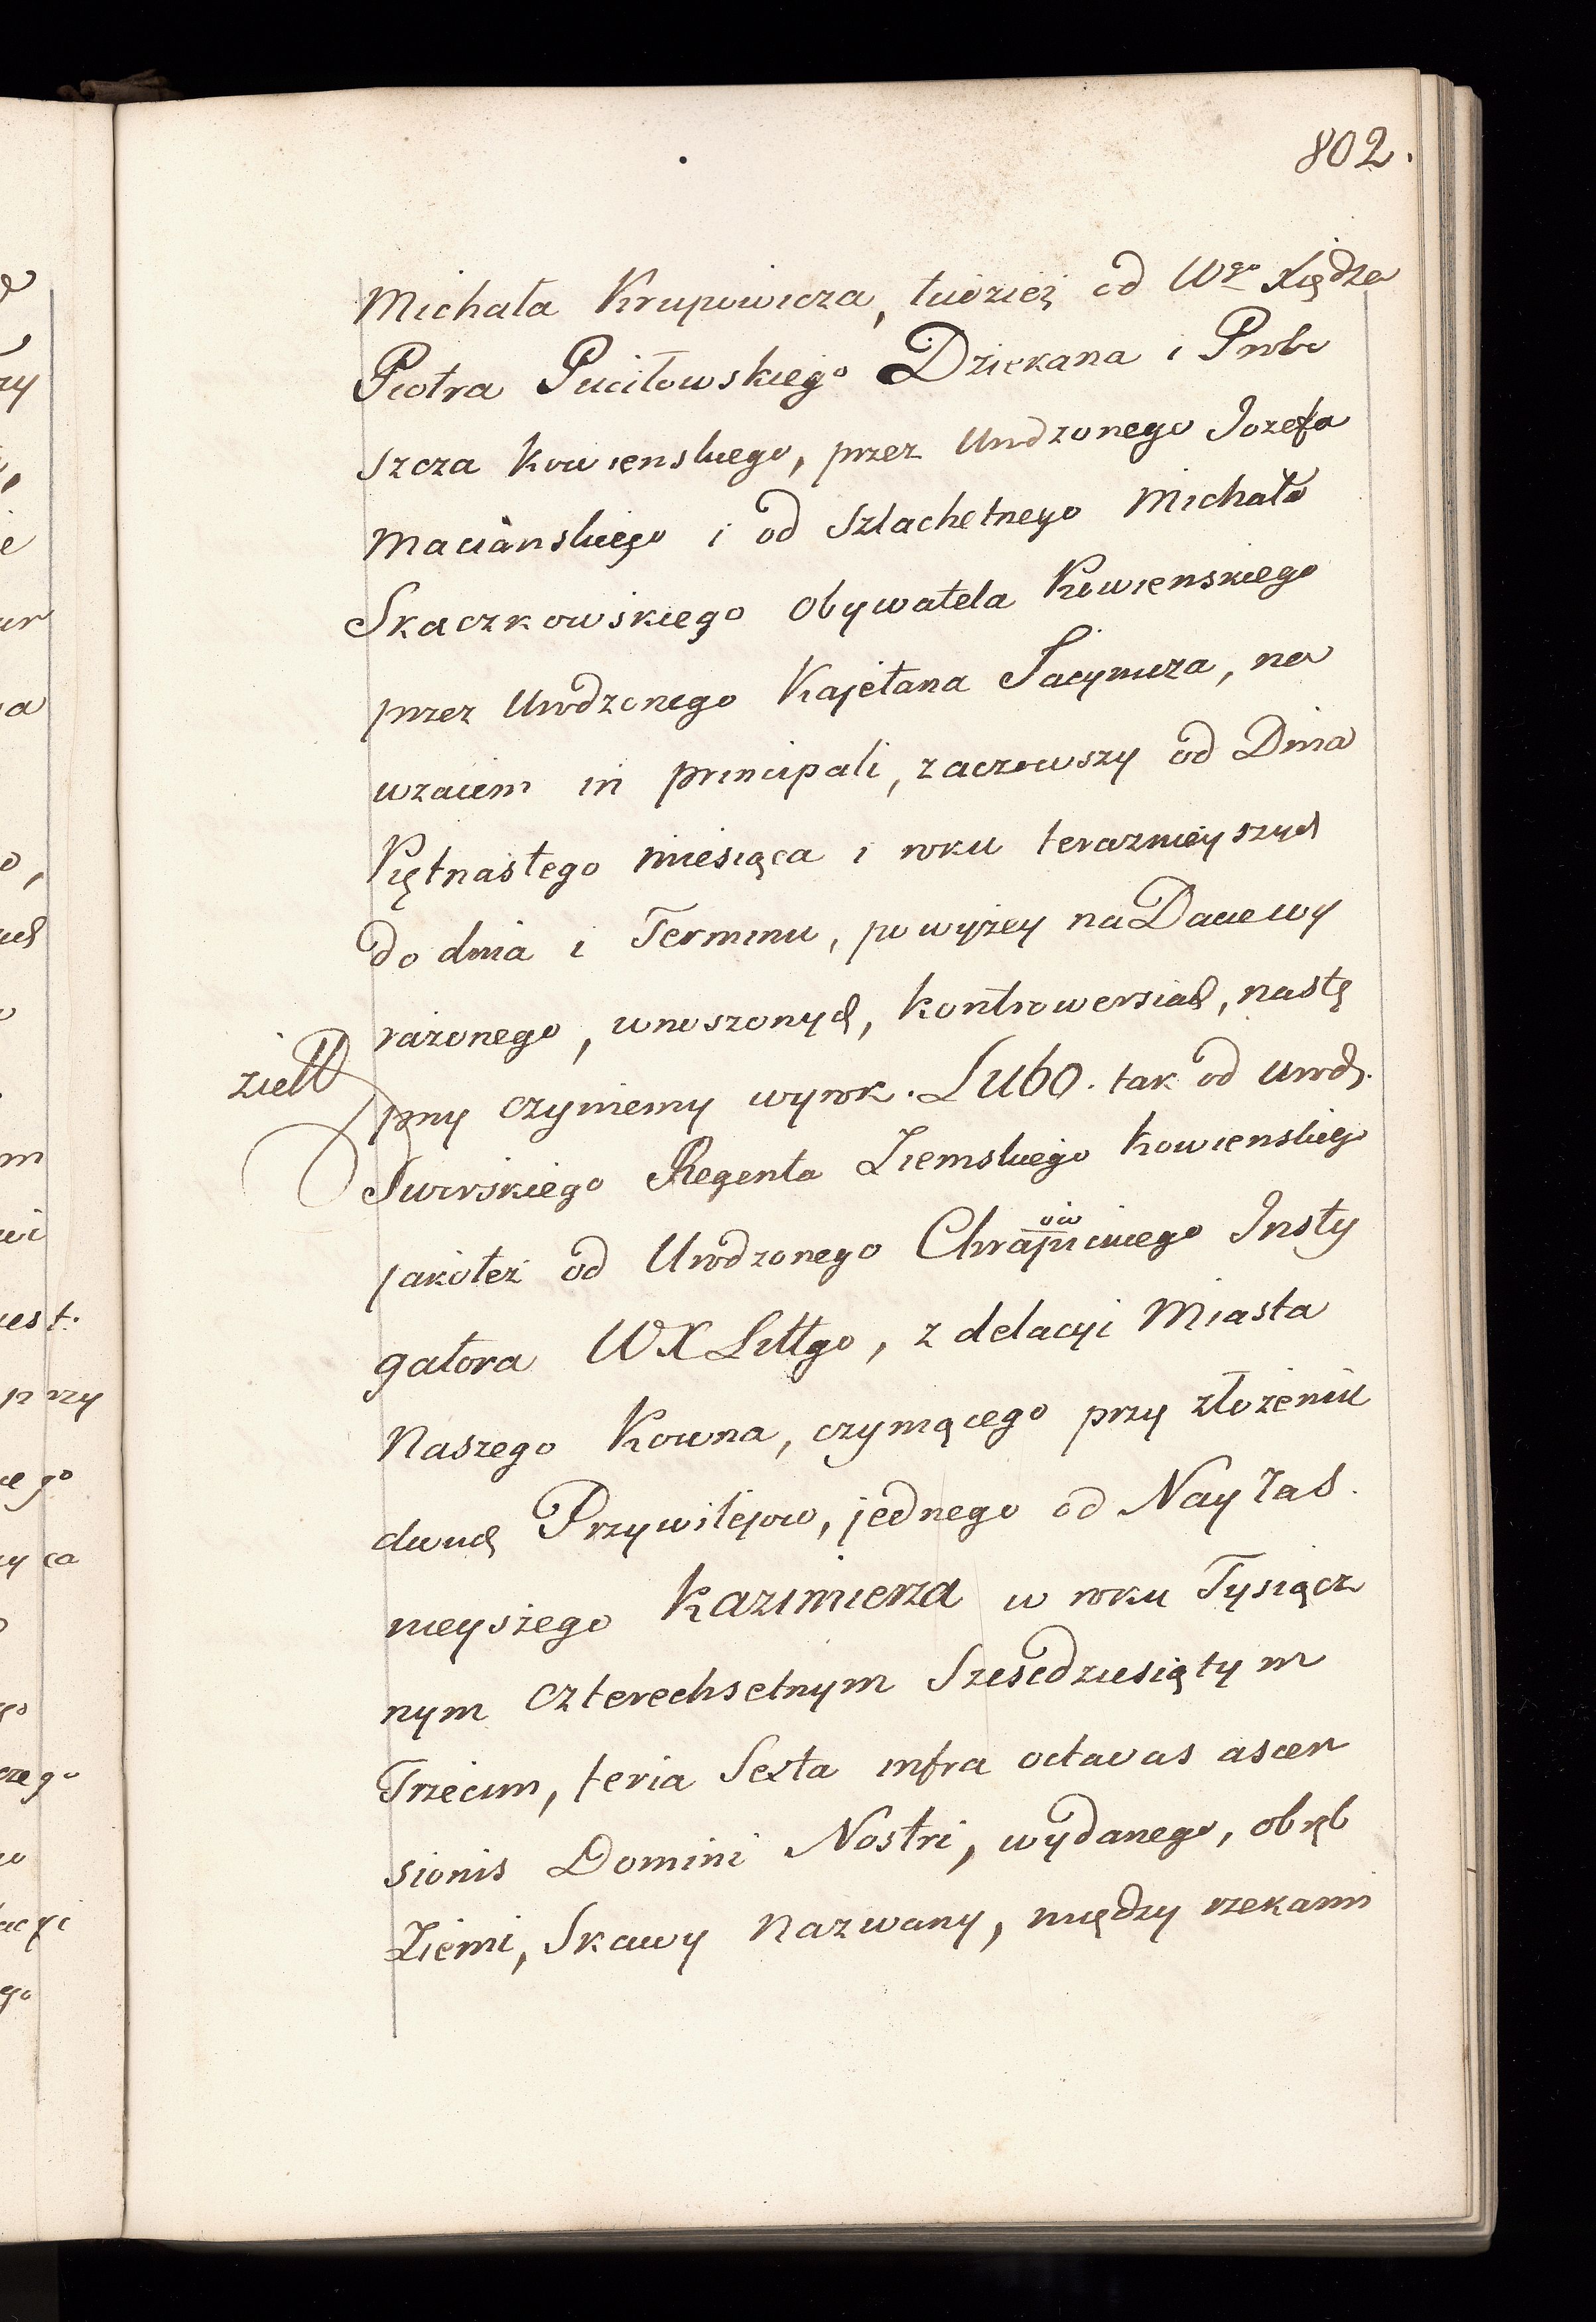 802.
Michała Krupowicza, tudzież od Wgo Xiędza
Piotra Puciłowskiego Dziekana i Probo
szcza Kowienskiego, przez Urodzonego Jozefa
Macianskiego i od Szlachetnego Michała
Skaczkowskiego Obywatela Kowienskiego
przez Urodzonego Kajetana Jacynicza, na
wzaiem in principali, zaczowszy od Dnia
Piętnastego miesiąca i roku teraznieyszych
do dnia i Terminu, powyżey na Dacie wy
rażonego, wnoszonych, kontrowersiach, nastę
pny czyniemy wyrok. Lubo. tak od urodz.
ziełł
Swirskiego Regenta Ziemskiego Kowienskiego
jakoteż od Urodzonego Chrapickiego Insty
gatora WXLittgo, z delacyi Miasta
Naszego Kowna, czyniącego przy złożeniu
dwuch Przywilejow, jednego od Nay Jas.
nieyszego Kazimierza w roku Tysiącz
nym Czterechsetnym Szescdziesiątym
Trzecim, feria Sexta infra octavas ascen
sionis Domini Nostri, wydanego, obręb
Ziemi, Skawy nazwany, między rzekami